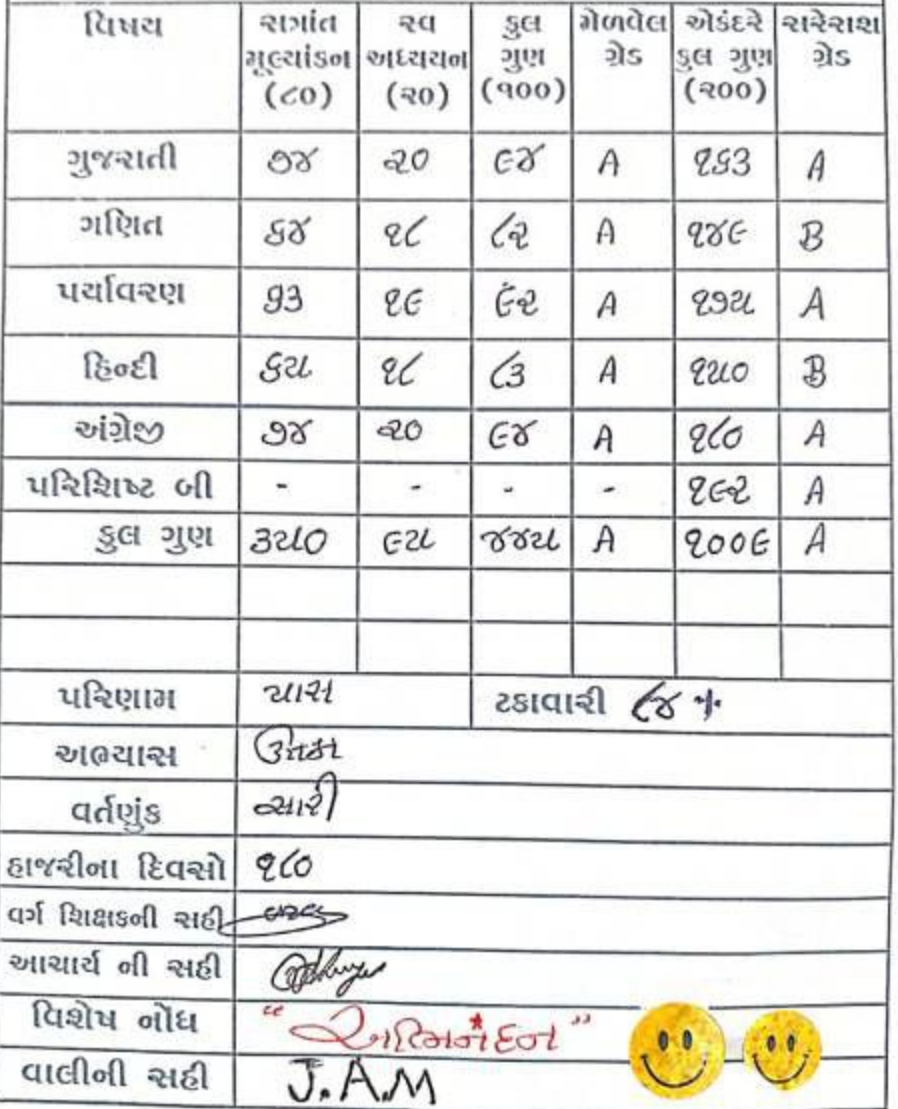 વિષય સત્રાંત મૂલ્યાંકન (૮૦) સ્વ અધ્યયન (૨૦) કુલ ગુણ (૧૦૦) મેળવેલ ગ્રેડ એકંદરે કુલ ગુણ (૨૦૦) સરેરાશ ગ્રેડ
ગુજરાતી ૭૪ ૨૦ ૯૪ A ૧૬૩ A
ગણિત ૬૪ ૧૮ ૮૨ A ૧૪૯ B
પર્યાવરણ ૭૩ ૧૯ ૯૨ A ૧૭૫ A
હિન્દી ૬૫ ૧૮ ૮૩ A ૧૫૦ B
અંગ્રેજી ૭૪ ૨૦ ૯૪ A ૧૮૦ A
પરિશિષ્ટ બી - - - - ૧૯૨ A
કુલ ગુણ ૩૫૦ ૯૫ ૪૪૫ A ૧૦૦૯ A
પરિણામ પાસ ટકાવારી ૮૪ %
અભ્યાસ ઉત્તમ
વર્તણુંક સારી
હાજરીના દિવસો ૧૮૦
વર્ગ શિક્ષકની સહી
આચાર્ય ની સહી
વિશેષ નોંધ "અભિનંદન"
વાલીની સહી J.A.M